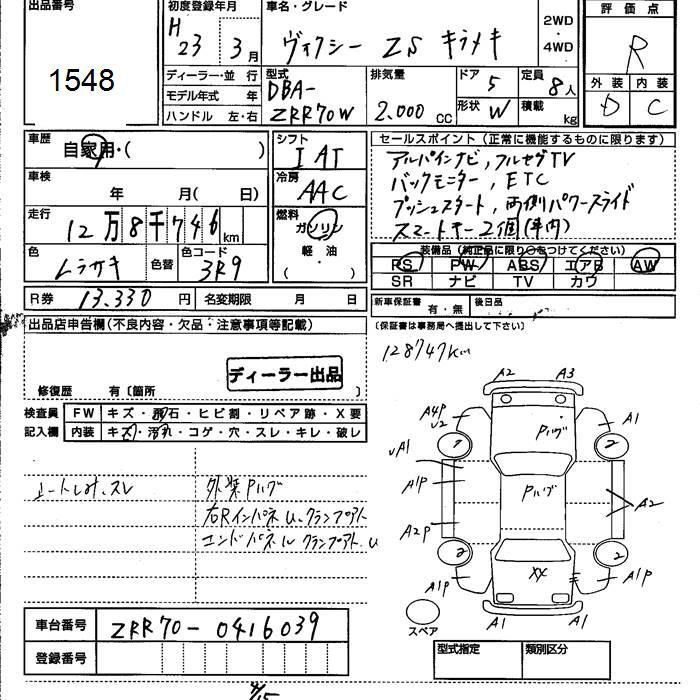 出品番号
1548
初度登録年月
H 23 3月
車名・グレード
ヴォクシー ZS キラメキ
2WD
・
4WD
評価点
R
外装 内装
D C
ディーラー・並行
モデル年式 年
ハンドル 左・右
型式
DBA-
ZRR70W
排気量
2.000 CC
ドア 5
形状 W
定員 8人
積載 kg
車歴
自家用・( )
車検
年 月( 日)
走行
12万8千746km
色
ムラサキ
色替
色コード
3R9
シフト
IAT
冷房
AAC
燃料
ガソリン
軽・油
( )
セールスポイント(正常に機能するものに限ります)
アルパインナビ, フルセグTV
バックモニター, ETC
プッシュスタート, 両側パワースライド
スマートキー2個(車内)
装備品(純正品に限り○をつけてください)
PS PW ABS エアB AW
SR ナビ TV カワ
R券 13.330円
名変期限 月 日
新車保証書 有・無
後日品
(保証書は事務局へ提出して下さい)
出品店申告欄(不良内容・欠品・注意事項等記載)
ディーラー出品
修復歴 有〔箇所 〕
128747km
検査員
記入欄
FW キズ・飛石・ヒビ割・リペア跡・X要
内装 キズ・汚れ・コゲ・穴・スレ・キレ・破レ
シートしみ.スレ
外装Pハゲ
右Rインパネ U.クランプアト
エンドパネル クランプアト.U
A2 A3
A4P
U2
A1
Pハゲ
UA1
A1P
Pハゲ
A2
A2P
2
2
XX
A1P
A1P
A1 A1
スペア
車台番号 ZRR70-0416039
登録番号
型式指定 類別区分